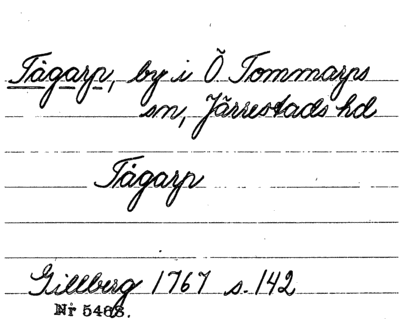 Tågarp, by i Ö Tommarps
sn, Järrestads hd
Tågarp
Gillberg 1767 s. 142
Nr 5468.